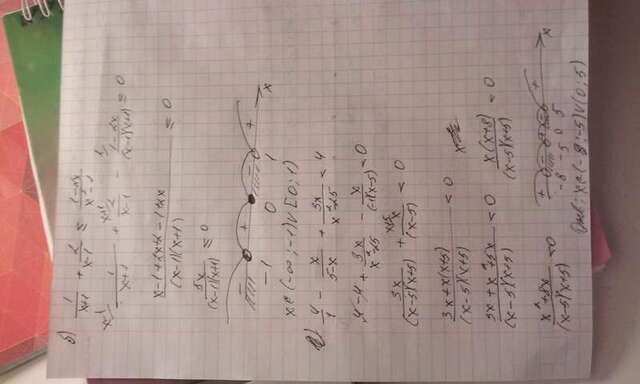 б) 1/(x+1) + 2/(x-1) ≤ (1-2x)/(x²-1)
x-1/ 1/(x+1) + x+1/ 2/(x-1) - 1/ (1-2x)/((x-1)(x+1)) ≤ 0
(x-1+2x+2-1+2x)/((x-1)(x+1)) ≤ 0
5x/((x-1)(x+1)) ≤ 0
- + - +
-1 0 1 x
x∈(-∞;-1)∪[0;1)
4/1 - x/(5-x) + 3x/(x²-25) < 4
4-4+ 3x/(x²-25) - x/((-1)(x-5)) < 0
3x/((x-5)(x+5)) + x+5/ x/(x-5) < 0
(3x+x(x+5))/((x-5)(x+5)) < 0
(3x+x²+5x)/((x-5)(x+5)) < 0 x(x+8)/((x-5)(x+5)) < 0
(x²+8x)/((x-5)(x+5)) < 0
+ - + - +
-8 -5 0 5 x
Ответ: x∈(-8;-5)∪(0;5)